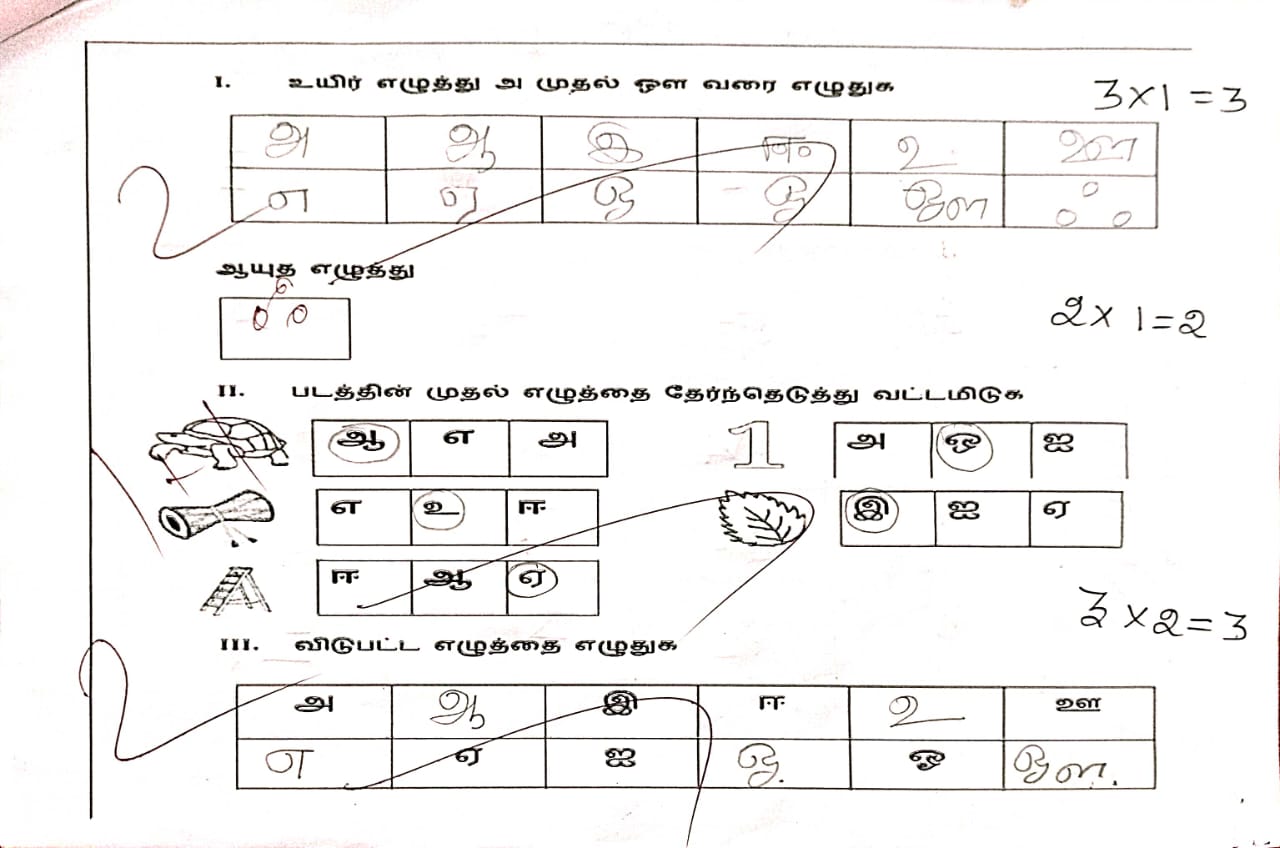 I. உயிர் எழுத்து அ முதல் ஒள வரை எழுதுக
3x1 = 3
அ ஆ இ ஈ உ ஊ
எ ஏ ஒ ஓ ஔ ஃ
ஆயுத எழுத்து
ஃ
2x 1=2
II. படத்தின் முதல் எழுத்தை தேர்ந்தெடுத்து வட்டமிடுக
ஆ எ அ 1 அ ஒ ஐ
எ உ ஈ இ ஐ ஏ
ஈ ஆ ஏ
3 x2=3
III. விடுபட்ட எழுத்தை எழுதுக
அ ஆ இ ஈ உ ஊ
எ ஏ ஐ ஒ ஓ ஔ.